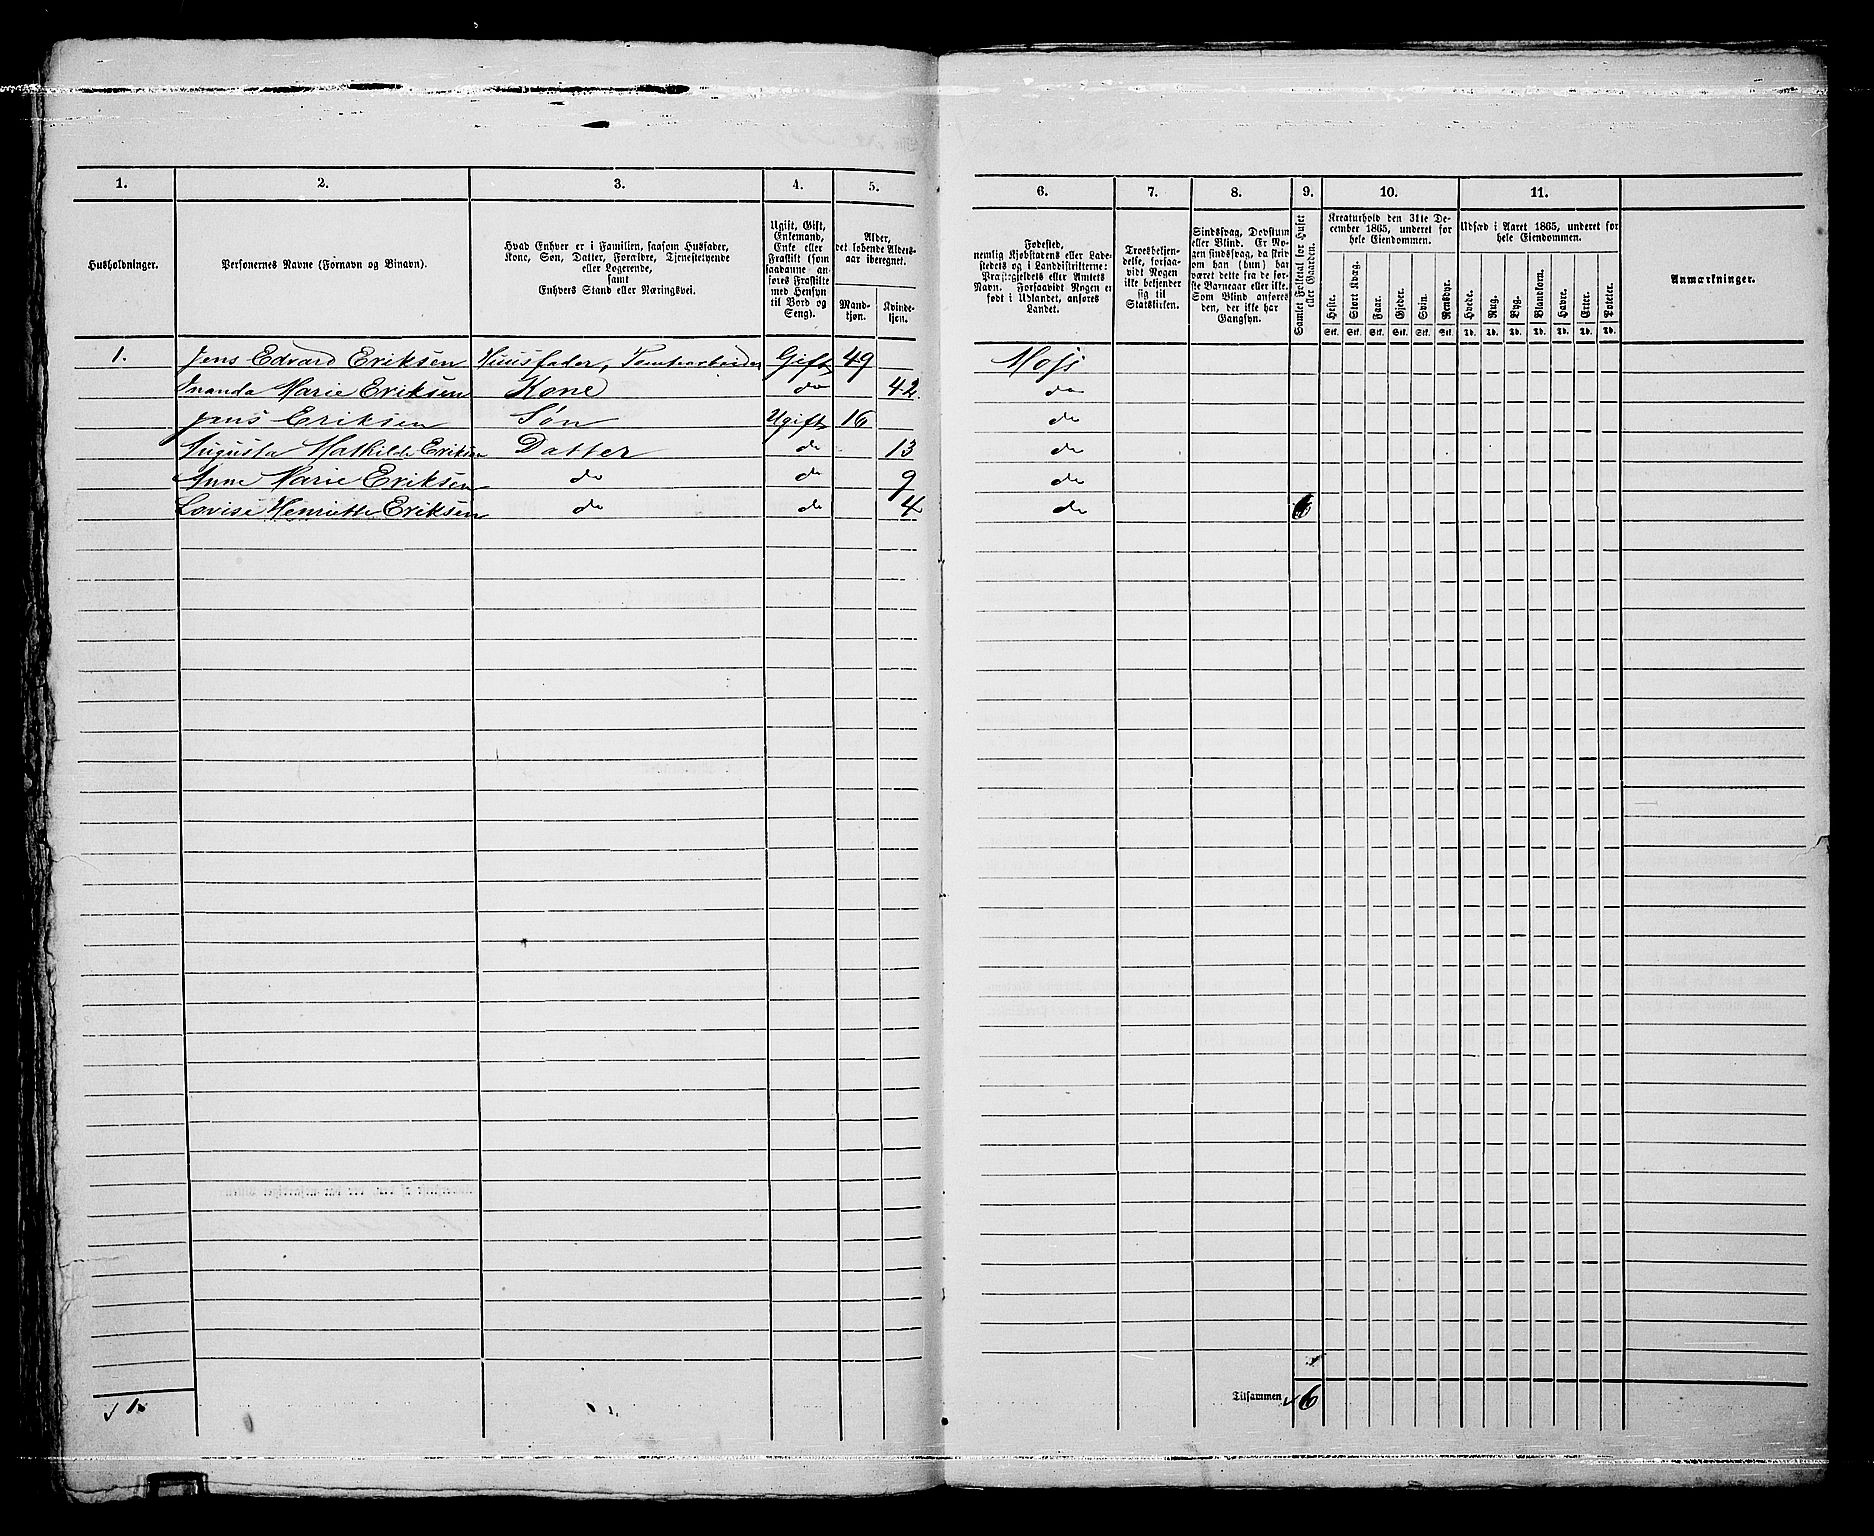 1. 2. 3. 4. 5. 6. 7. 8. 9. 10. 11.
Husholdninger.
Personernes Navne (Fornavn og Binavn).
Hvad Enhver er i Familien, saasom Husfader,
Kone, Søn, Datter, Forældre, Tjenestetyende
eller Logerende,
samt
Enhvers Stand eller Næringsvei.
Ugift, Gift,
Enkemand,
Enke eller
Fraskilt (som
saadanne an-
føres Fraskilte
med Hensyn
til Bord og
Seng).
Alder,
det løbende Alders-
aar iberegnet.
Mand-
kjøn.
Kvinde-
kjøn.
Fødested,
nemlig Kjøbstadens eller Lade-
stedets og i Landdistrikterne:
Præstegjeldets eller Amtets
Navn. Forsaavidt Nogen er
født i Udlandet, anføres
Landet.
Troesbekjen-
delse, forsaa-
vidt Nogen
ikke bekjender
sig til
Statskirken.
Sindssvag, Døvstum
eller Blind. Er No-
gen sindssvag, da skriv
om han (hun) har
været dette fra de før-
ste Barneaar eller ikke.
Som Blind anføres
den, der ikke har
Gangsyn.
Samlet Folketal for Huset
eller Gaarden.
Kreaturhold den 31te De-
cember 1865, underet for
hele Eiendommen.
Heste. Stort Kvæg. Faar. Gjeder. Svin. Rensdyr.
Stk. Stk. Stk. Stk. Stk. Stk.
Udsæd i Aaret 1865, underet for
hele Eiendommen.
Hvede. Rug. Byg. Blandkorn. Havre. Erter. Poteter.
Td. Td. Td. Td. Td. Td. Td.
Anmærkninger.
1. Jens Edvard Eriksen Huusfader, Tomtearbeider Gift 49 Moss
Marie Eriksen Kone do 42. do
Jens Eriksen Søn Ugift 16 do
Augusta Mathilde Eriksen Datter do 13 do
Anne Marie Eriksen do do 9 do
Lovise Henriette Eriksen do do 4 do 6
1. Tilsammen 6